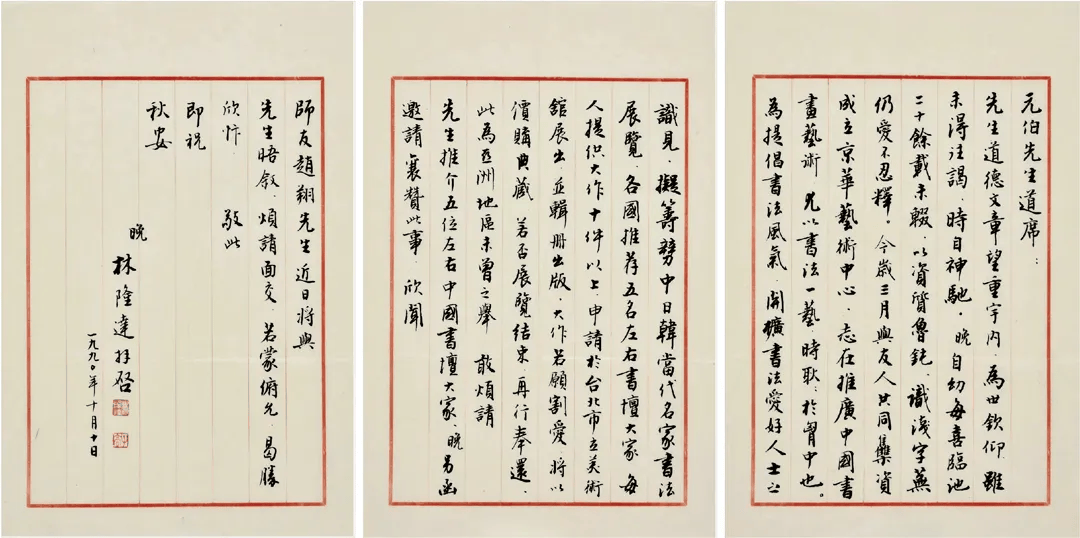 元伯先生道席：
先生道德文章望重宇內，為世欽仰雖
未得往謁，時自神馳。晚自幼每喜臨池
二十餘載未輟，以資質魯鈍、識淺字蕪
仍愛不忍釋。今歲三月與友人共同集資
成立京華藝術中心，志在推廣中國書
畫藝術 尤以書法一藝時耿：於胷中也。
為提倡書法風氣、開擴書法愛好人士之
識見，擬籌辦中日韓當代名家書法
展覽，各國推荐五名左右書壇大家 每
人提供大作十件以上，申請於台北市立美術
舘展出 並輯册出版，大作若願割愛，將以
價購典藏 若否展覽結束 再行奉還，
此為亞洲地區未曾之舉 敢煩請
先生推介五位左右中國書壇大家，晚另函
邀請 襄贊此事 欣聞
師友趙翔先生近日將與
先生晤叙，煩請面交，若蒙俯允，曷勝
欣忭 敬此
即祝
秋安
晚
林隆達拜啓
一九九〇年十月十日